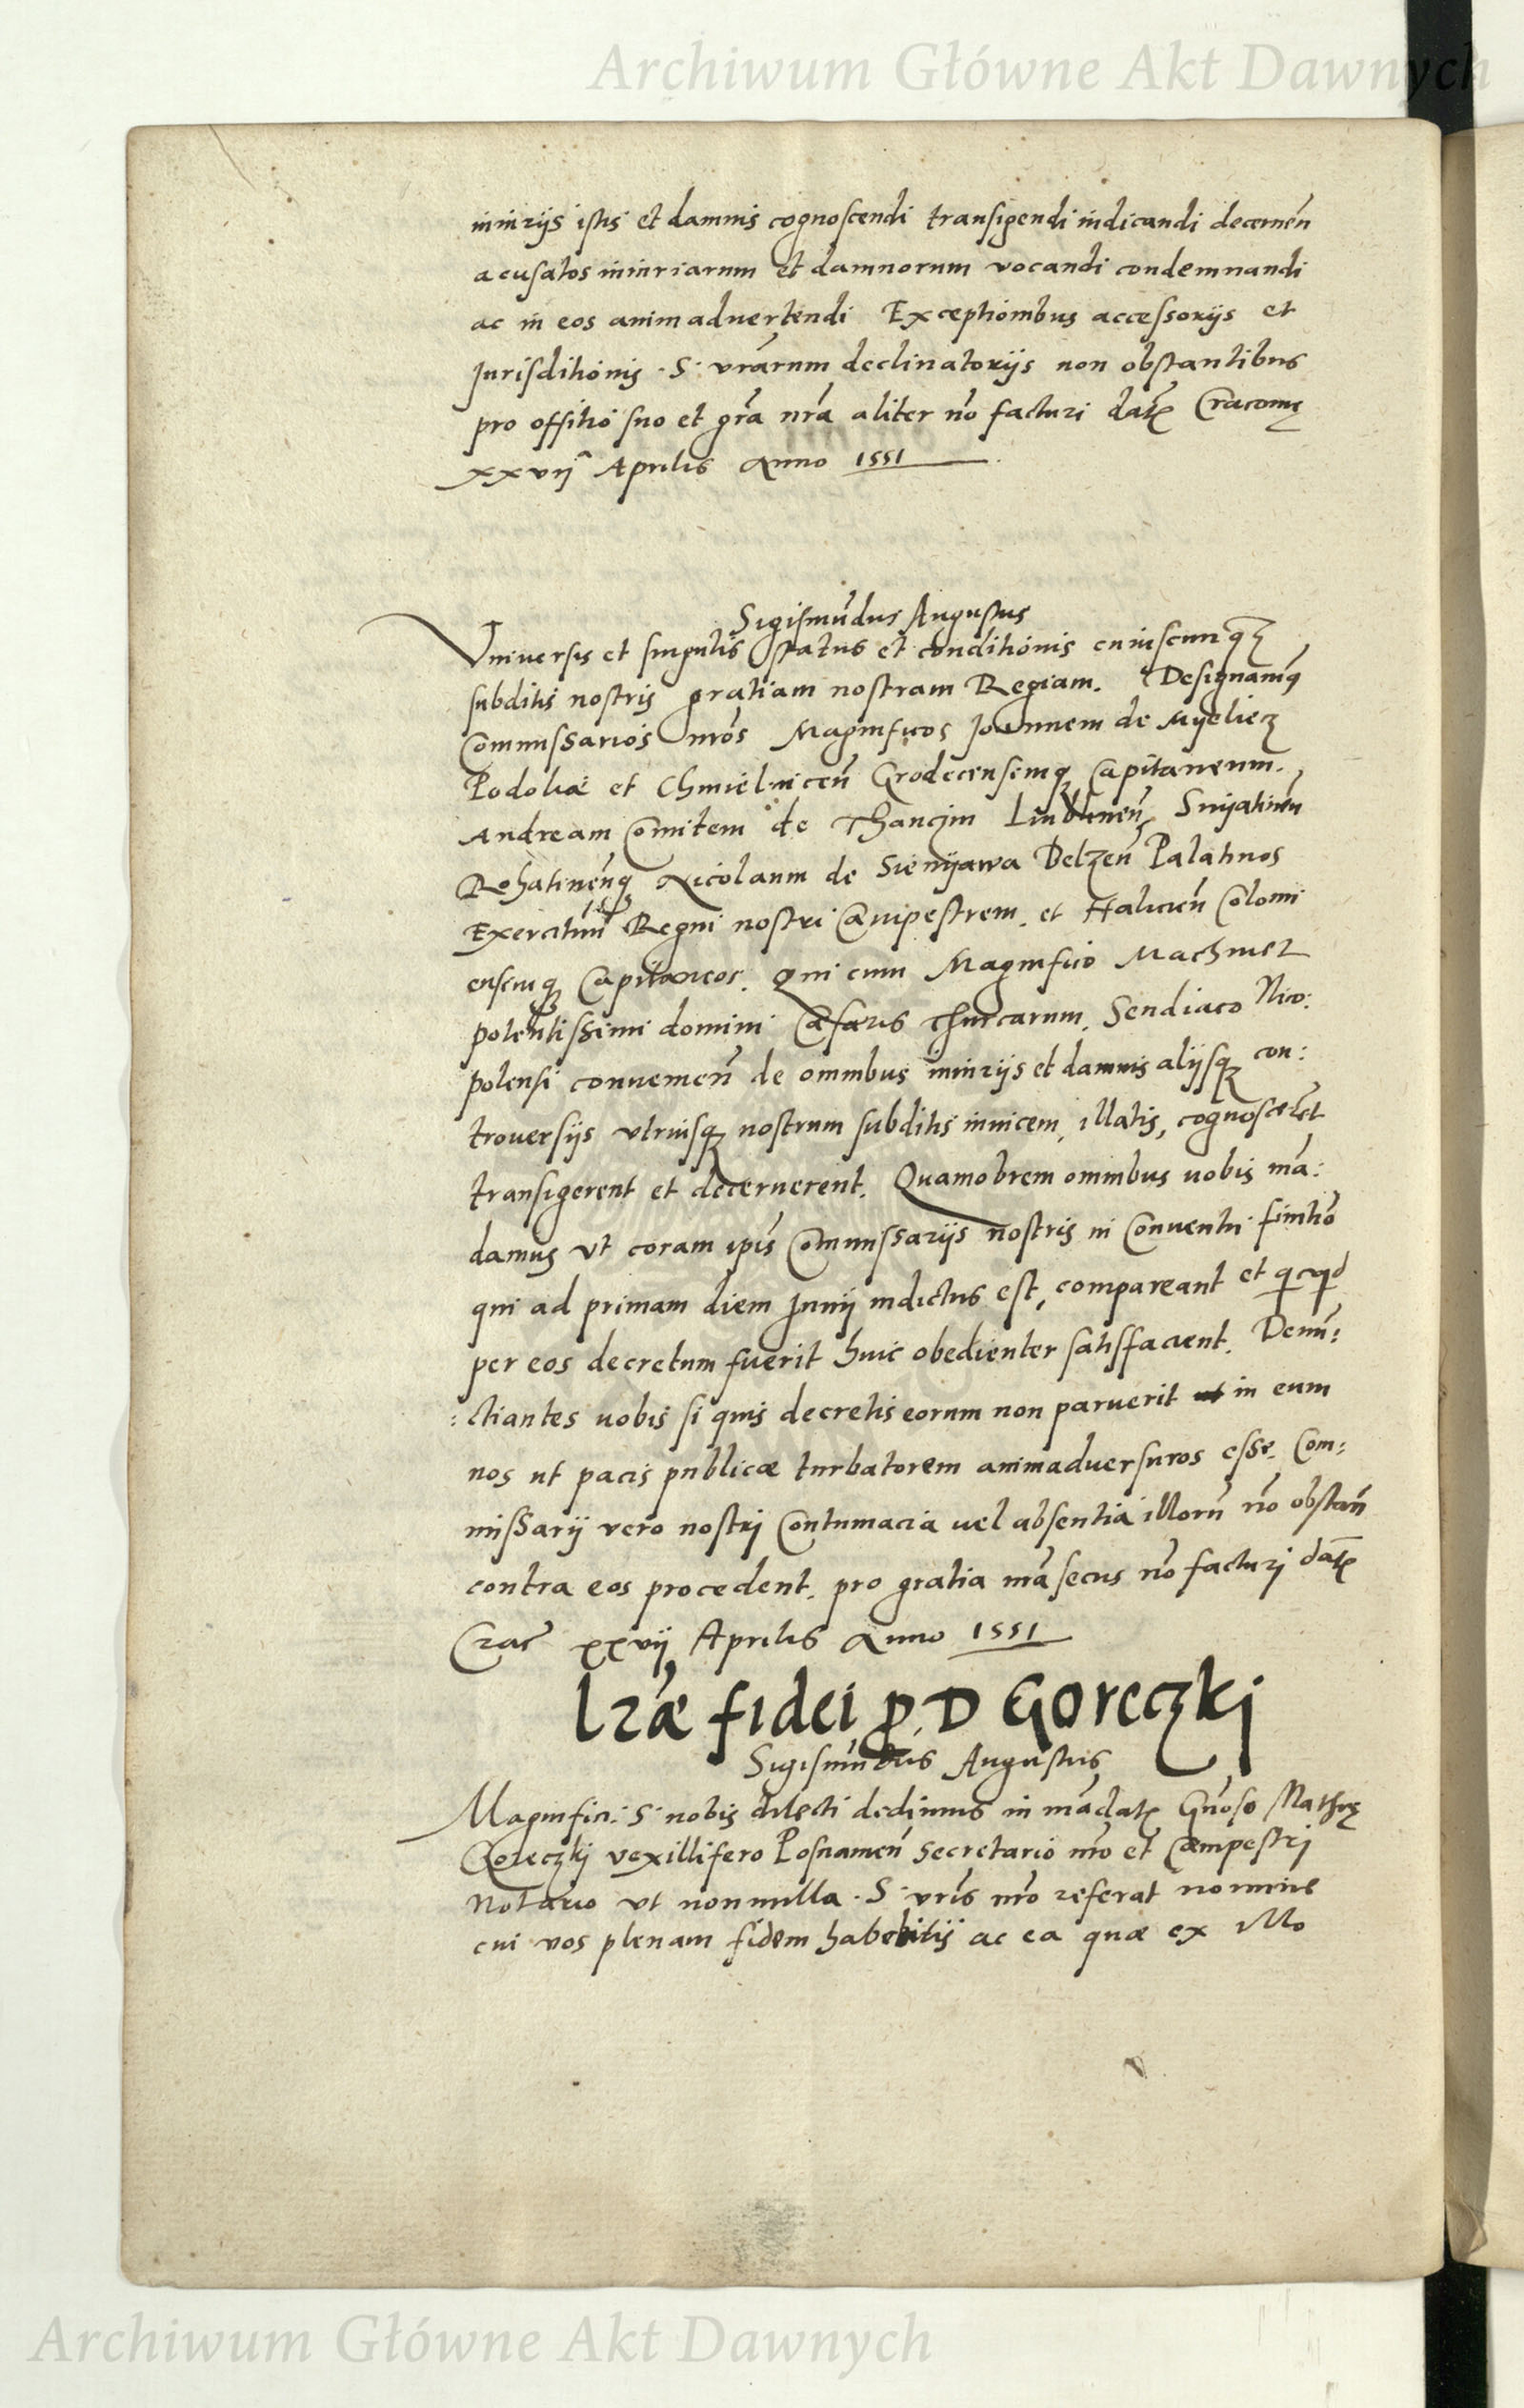 Archiwum Główne Akt Dawnych
iniurijs istis et damnis cognoscendi transigendi iudicandi decernen̄
acusatos iniuriarum et damnorum vocandi condemnandi
ac in eos animaduertendi Exceptionibus accessorijs et
Jurisditionis · S · vrārum declinatorijs non obstantibus
pro offitio suo et grā nrā aliter nō facturi datꝭ Cracouię
xxvij Aprilis Anno 1551
Sigismūdus Augustus
Vniuersis et singulis status et conditionis cuiuscunqꝫ
subditis nostris gratiam nostram Regiam. Designauimꝰ
Commissarios nrōs Magnificos Joannem de Myeliecz
Podoliae et Chmielnicen̄ Grodecensemqꝫ Capitaneum.
Andream Comitem de Thanczin Lublinen̄, Snyatinen̄
Rohatinenqꝫ Nicolaum de Sienyawa Belzen̄ Palatinos
Exercituū Regni nostri Campestrem. et Halicien̄ Colomi
ensemqꝫ Capitaneos. qui cum Magnifico Machmet
potentissimi domini Cæsaris Thurcarum. Sendiaco Nico:
polensi conuenien̄ de omnibus iniurijs et damnis alijsqꝫ con:
trouersijs vtriusqꝫ nostrum subditis inuicem, illatis, cognoscerēt
transigerent et decernerent. Quamobrem omnibus uobis mā:
damus vt coram ip̄is Commissarijs nostris in Conuentu finitio
qui ad primam diem Junij indictus est, compareant et qicqid
per eos decretum fuerit huic obedienter satisfacient. Denū:
:ctiantes uobis si quis decretis eorum non paruerit in eum
nos ut pacis publicæ turbatorem animaduersuros esse. Com:
missarij vero nostri Contumacia uel absentia illorū nō obstan̄
contra eos procedent. pro gratia nrā secus nō facturi datꝭ
Crac̄ xxvij Aprilis Anno 1551
Lr̄æ fidei ꝓ D Goreczki
Sigismūdus Augustus
Magnifici · S · nobis dilecti dedimus in mādatꝭ Gn̄oso Mathię
Goreczkj vexillifero Posnanien̄ Secretario nrō et Campestri
Notario vt nonnulla · S · vrīs nrō referat nomine
cui vos plenam fidem habebitis ac ea quæ ex illo
Archiwum Główne Akt Dawnych